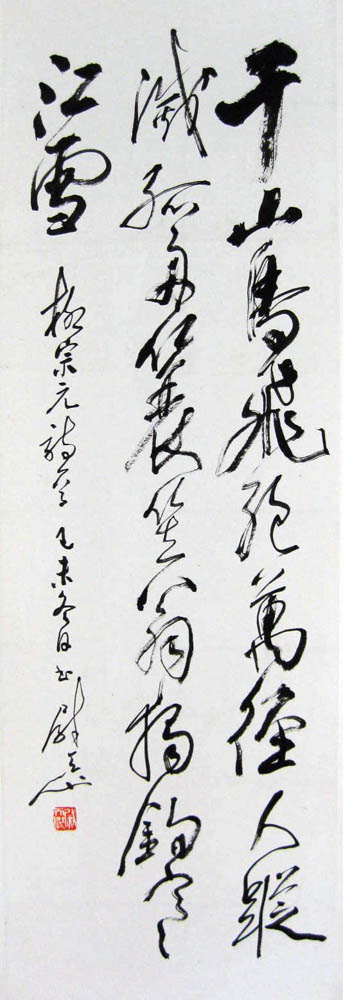 千山鳥飛絕萬徑人蹤
滅孤舟簑笠翁獨釣寒
江雪 柳宗元詩 乙未冬日書 尉